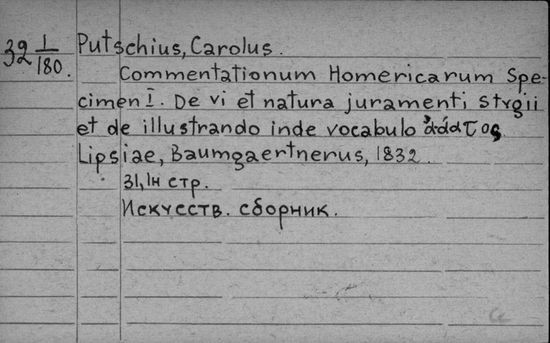 39 1/180. Putschius, Carolus.
Commentationum Homericarum Spe-
cimen I. De vi et natura juramenti stygii
et de illustrando inde vocabulo ἀάατος
Lipsiae, Baumgaertnerus, 1832.
31, 1н стр.
Искусств. сборник.